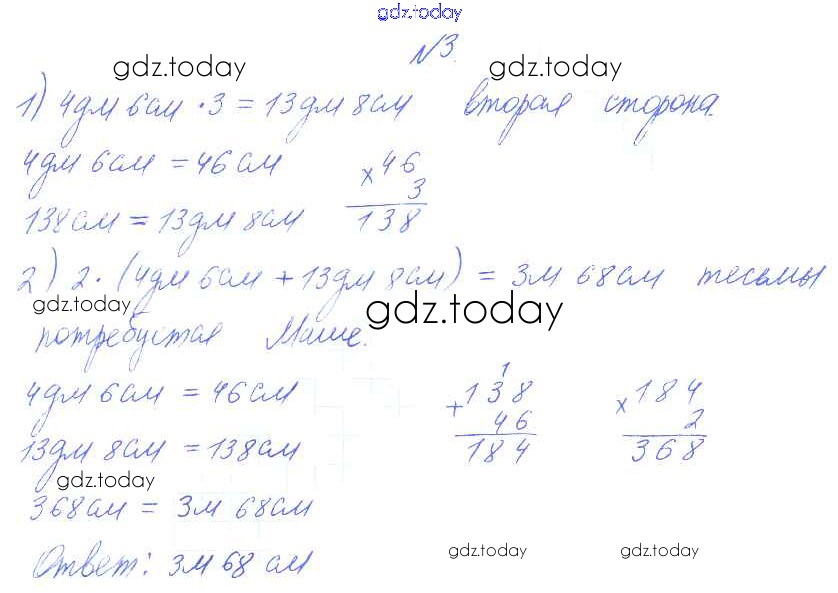 gdz.today
№3.
gdz.today gdz.today
1) 4дм 6см · 3 = 13дм 8см вторая сторона.
4дм 6см = 46см × 46
3
138см = 13дм 8см 138
2) 2 · (4дм 6см + 13дм 8см) = 3м 68см тесьмы
gdz.today gdz.today
потребуется Маше.
1
4дм 6см = 46см + 138 × 184
46 2
13дм 8см = 138см 184 368
gdz.today
368см = 3м 68см
gdz.today gdz.today
Ответ: 3м 68 см